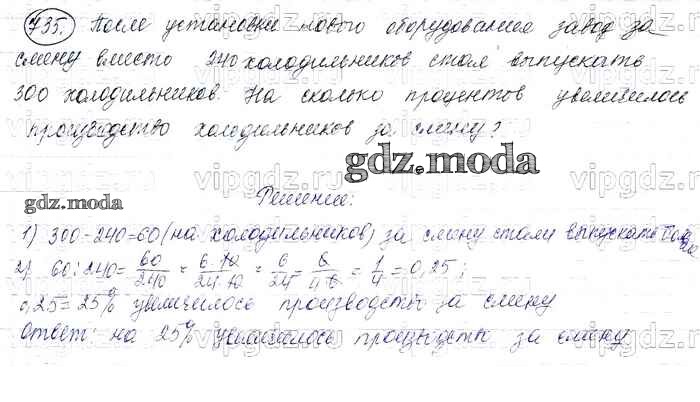 735. После установки нового оборудования завод за
смену вместо 240 холодильников стал выпускать
300 холодильников. На сколько процентов увеличилось
производство холодильников за смену?
gdz.moda
gdz.moda
Решение:
1) 300-240=60 (на холодильников) за смену стали выпускать
2) 60:240= 60/240 = 6·10/24·10 = 6/24 = 6/4·6 = 1/4 = 0,25;
0,25=25% увеличилось производсты за смену
Ответ: на 25% увеличилось за смену